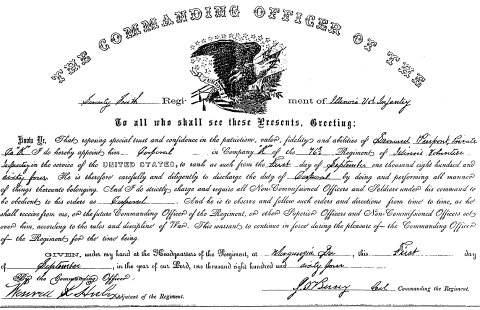 THE COMMANDING OFFICER OF THE
Seventy Sixth Regiment of Illinois Vol. Infantry
To all who shall see these Presents, Greeting:
Know Ye, That reposing special trust and confidence in the patriotism, valor, fidelity and abilities of Samuel Pierpont Private
Co "K" I do hereby appoint him Corporal in Company "K" of the 76 Regiment of Illinois Volunteer
Infantry in the service of the UNITED STATES, to rank as such from the First day of September one thousand eight hundred and
sixty four. He is therefore carefully and diligently to discharge the duty of Corporal by doing and performing all manner
of things thereunto belonging. And I do strictly charge and require all Non-Commissioned Officers and Soldiers under his command to
be obedient to his orders as Corporal. And he is to observe and follow such orders and directions from time to time, as he
shall receive from me, or the future Commanding Officer of the Regiment, or other Superior Officers and Non-Commissioned Officers set
over him, according to the rules and discipline of War. This warrant to continue in force during the pleasure of the Commanding Officer
of the Regiment for the time being.
GIVEN, under my hand at the Headquarters of the Regiment, at this First day
of September, in the year of our Lord, one thousand eight hundred and sixty four
By the Commanding Officer.
Adjutant of the Regiment. J. W. Busey Col. Commanding the Regiment.